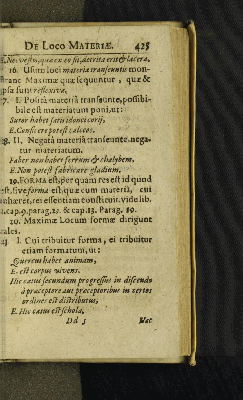 DE LOCO MATERIÆ. 425
E. Nec vestis, quæ ex eo fit, detrita erit & lacera.
16. Usum loci materiæ transeuntis mon-
strant Maximæ quæ sequuntur, quæ &
ipsa sunt reflexivæ.
17. I. Posita materiâ transeunte, possibi-
bile est materiatum poni, ut:
Sutor habet satis idonei corij,
E. Conficere potest calceos.
18. II. Negatâ materiâ transeunte, nega-
tur materiatum.
Faber non habet ferrum & chalybem,
E. Non potest fabricare gladium.
19. FORMA est, per quam res est id quod
est, sive forma est, quæ cum materiâ, cui
inhæret, rei essentiam constituit. vide lib.
1. cap. 9. parag. 23. & cap. 13. Parag. 59.
20. Maximæ Locum formæ dirigunt
tales.
21. I. Cui tribuitur forma, ei tribuitur
etiam formatum, ut:
Quercus habet animam,
E. est corpus vivens.
Hic cætus secundum progressus in discendo
à præceptore aut præceptoribus in certos
ordines est distributus,
E. Hic cætus est schola.
Dd 5 Hæc